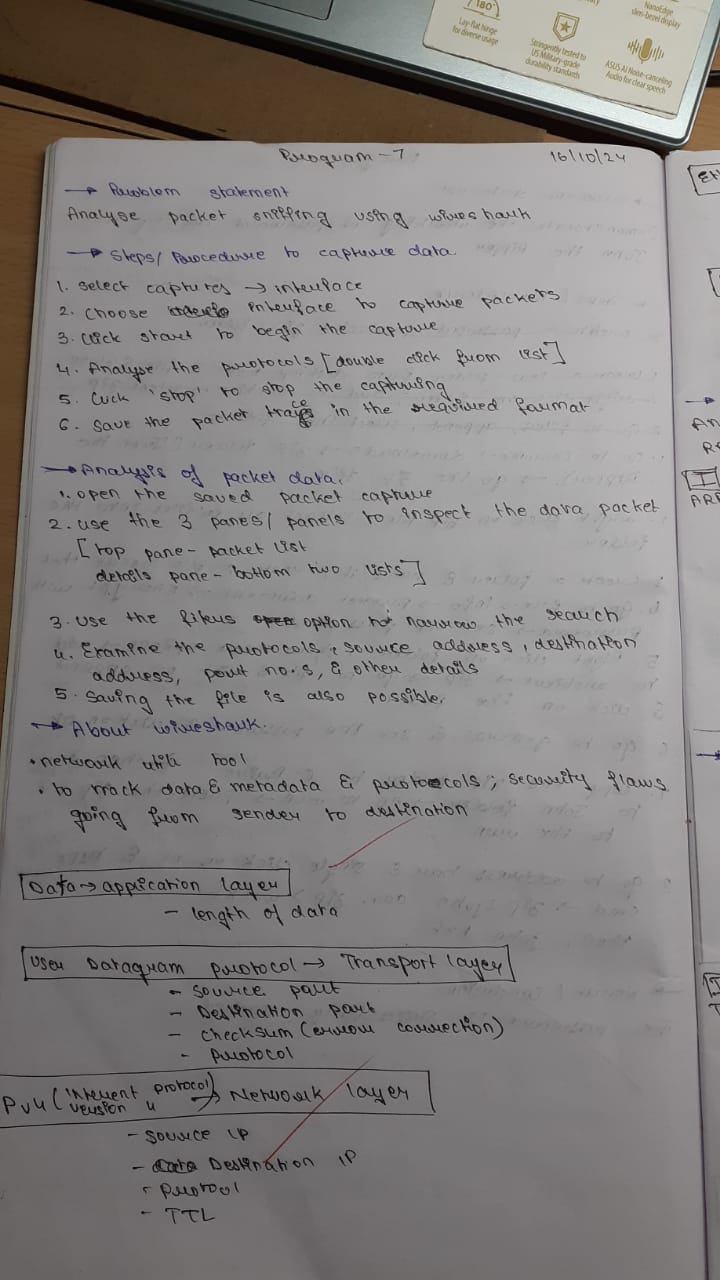 180°
Lay-flat hinge
for diverse usage
Stringently tested to
US Military-grade
durability standards
NanoEdge
slim-bezel display
ASUS AI Noise-canceling
Audio for clear speech
Program - 7
16/10/24
→ Problem statement
Analyse packet sniffing using wireshark
→ Steps/ Procedure to capture data
1. Select captures → interface
2. Choose interface to capture packets
3. Click start to begin the capture
4. Analyse the protocols [double click from list]
5. Click 'stop' to stop the capturing
6. Save the packet trace in the required format
→ Analysis of packet data.
1. open the saved packet capture
2. use the 3 panes/ panels to inspect the data packet
[top pane - packet list
details pane - bottom two lists]
3. Use the filters option to narrow the search
4. Examine the protocols, source address, destination
address, port no.s, & other details
5. Saving the file is also possible.
→ About wireshark.
• network utili tool
• to track data & metadata & protocols; security flaws
going from sender to destination
Data → application layer
- length of data
User Datagram protocol → Transport layer
- source port
- Destination port
- checksum (error correction)
- protocol
Pv4 (internet protocol
version 4 → Network layer
- source IP
- Destination IP
- protool
- TTL
Et
An
R
I
ARP
I
T